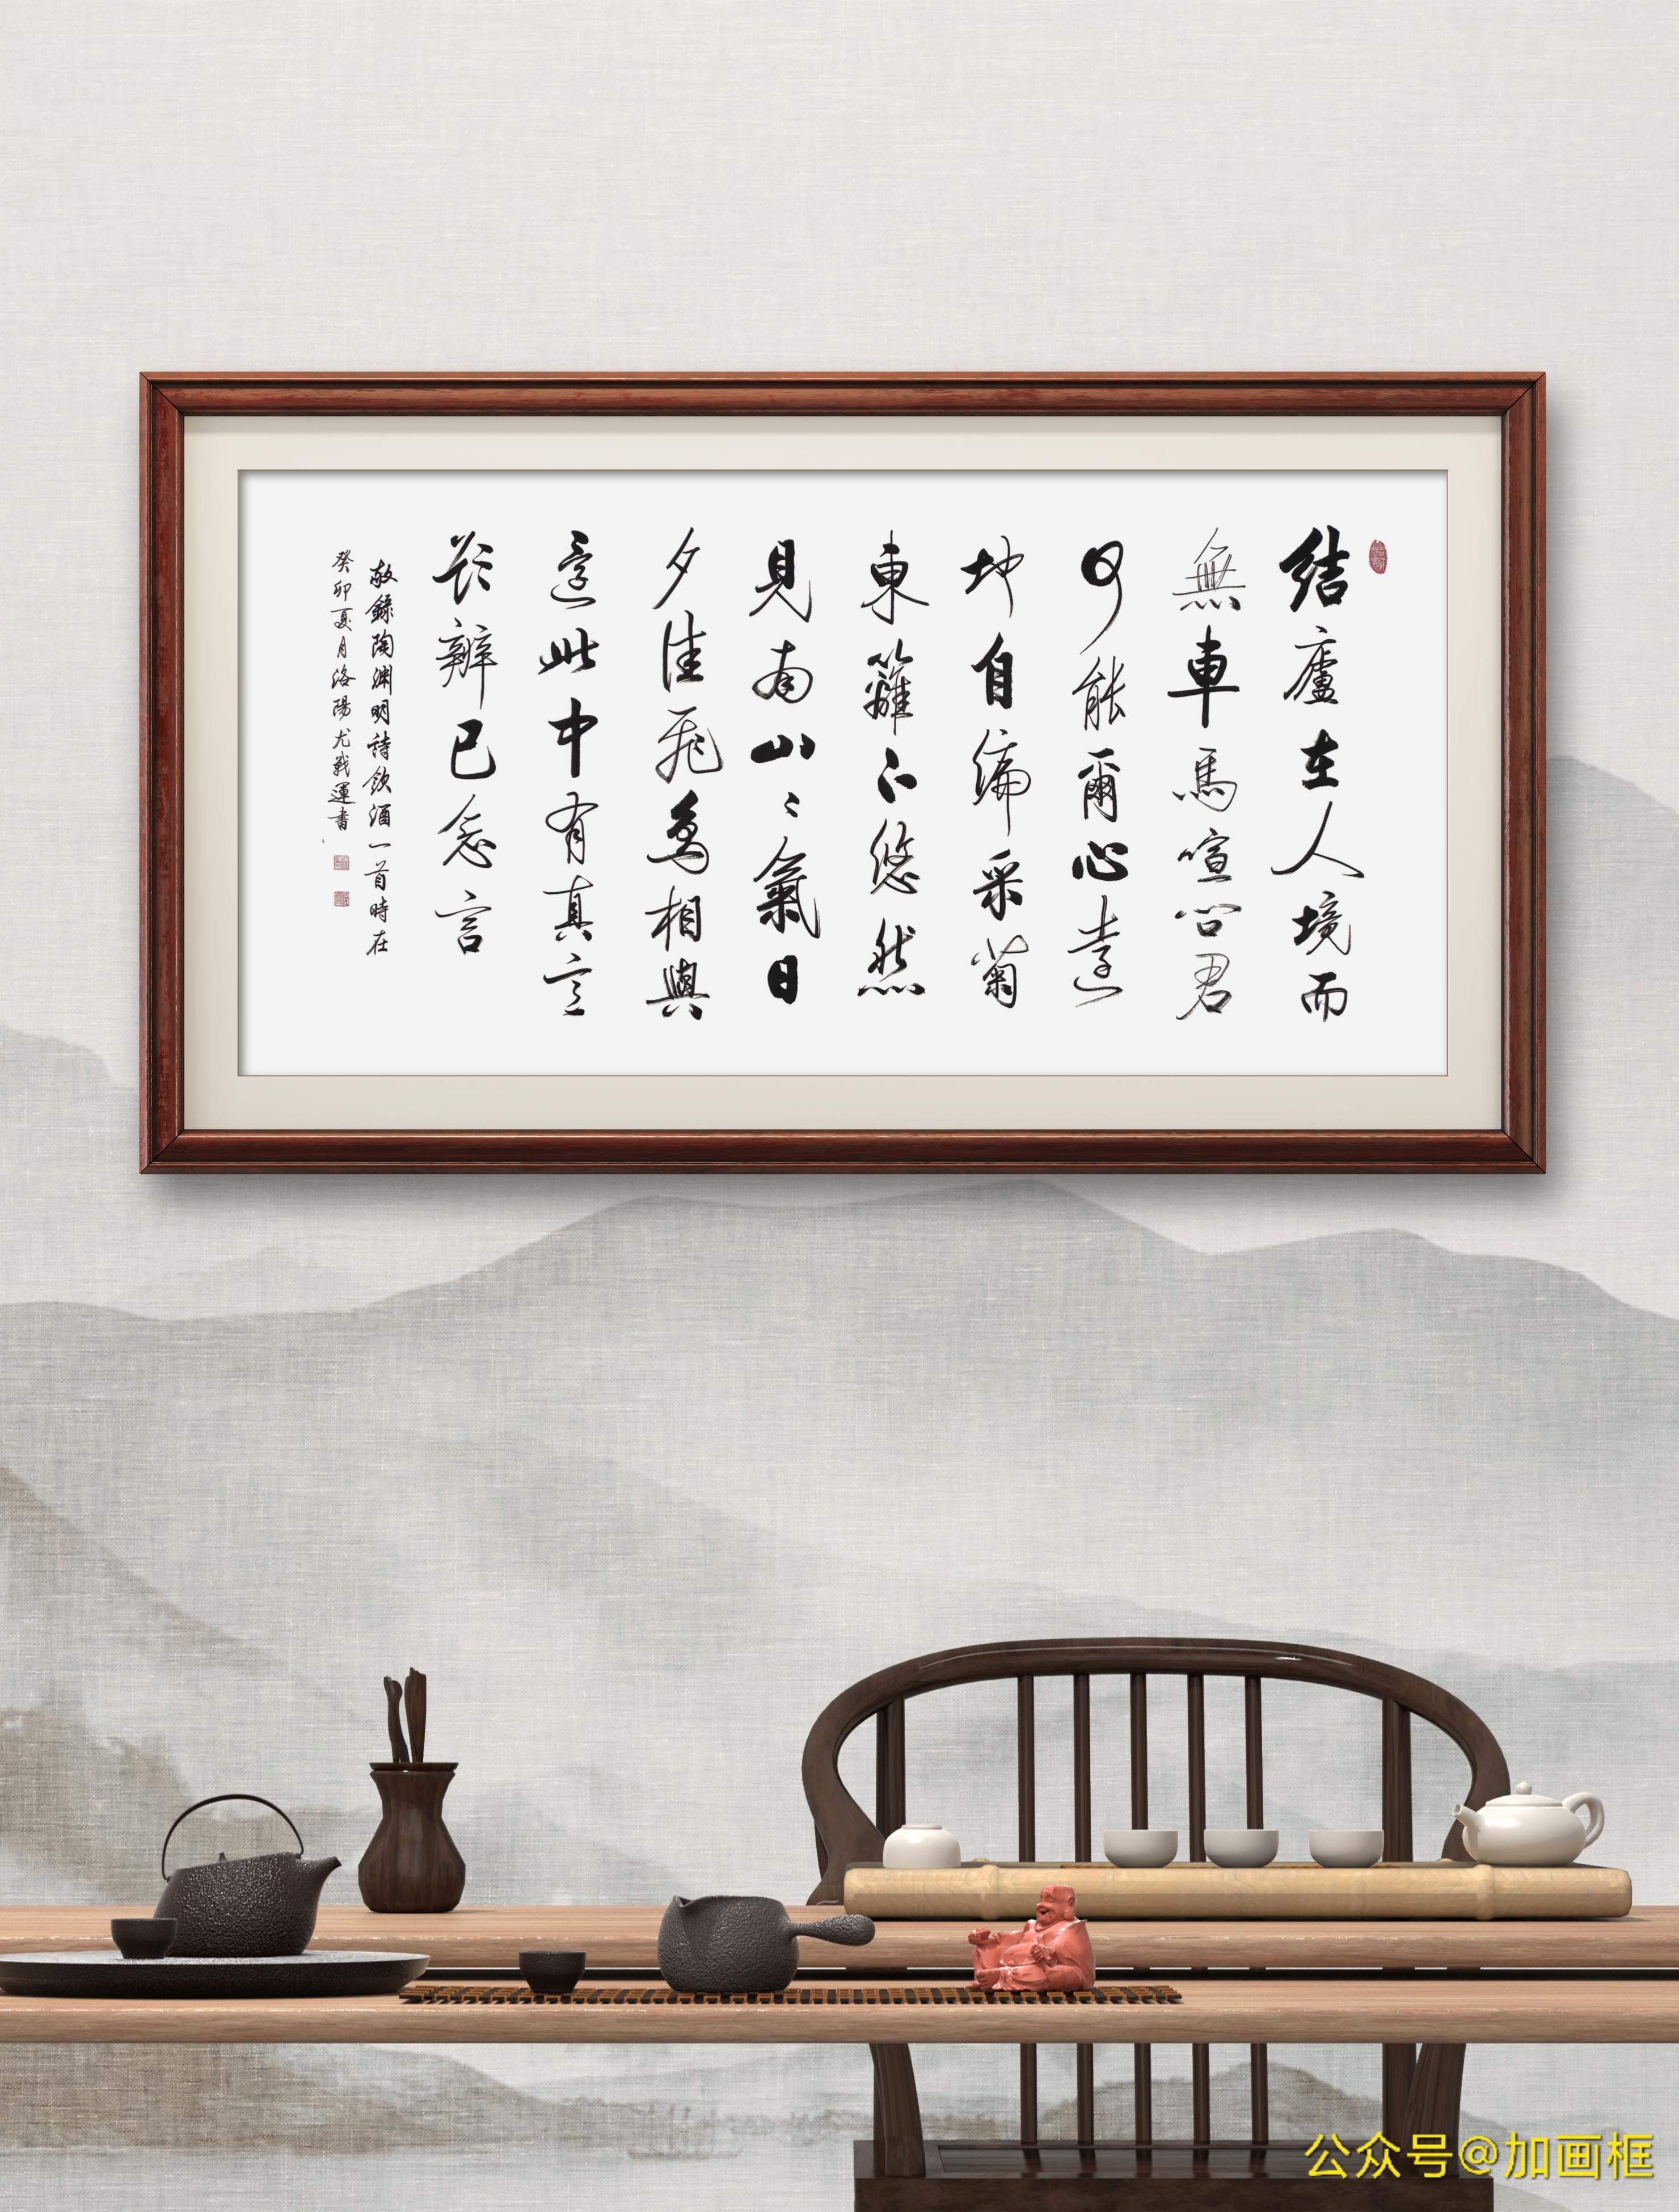 結廬在人境而
無車馬喧問君
何能爾心遠
地自偏采菊
東籬下悠然
見南山〻氣日
夕佳飛鳥相與
還此中有真意
欲辨已忘言
敬錄陶淵明詩飲酒一首時在
癸卯夏月洛陽尤戰運書
公众号@加画框